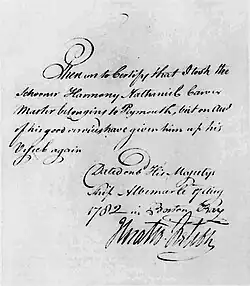 These are to Certify that I took the
Schooner Harmony Nathaniel Carver
Master belonging to Plymouth, but on acct
of his good services have given him up his
Vessel again
Dated on bd His Majestys
Ship Albemarle 17 Aug
1782 in Boston Bay
Horatio Nelson